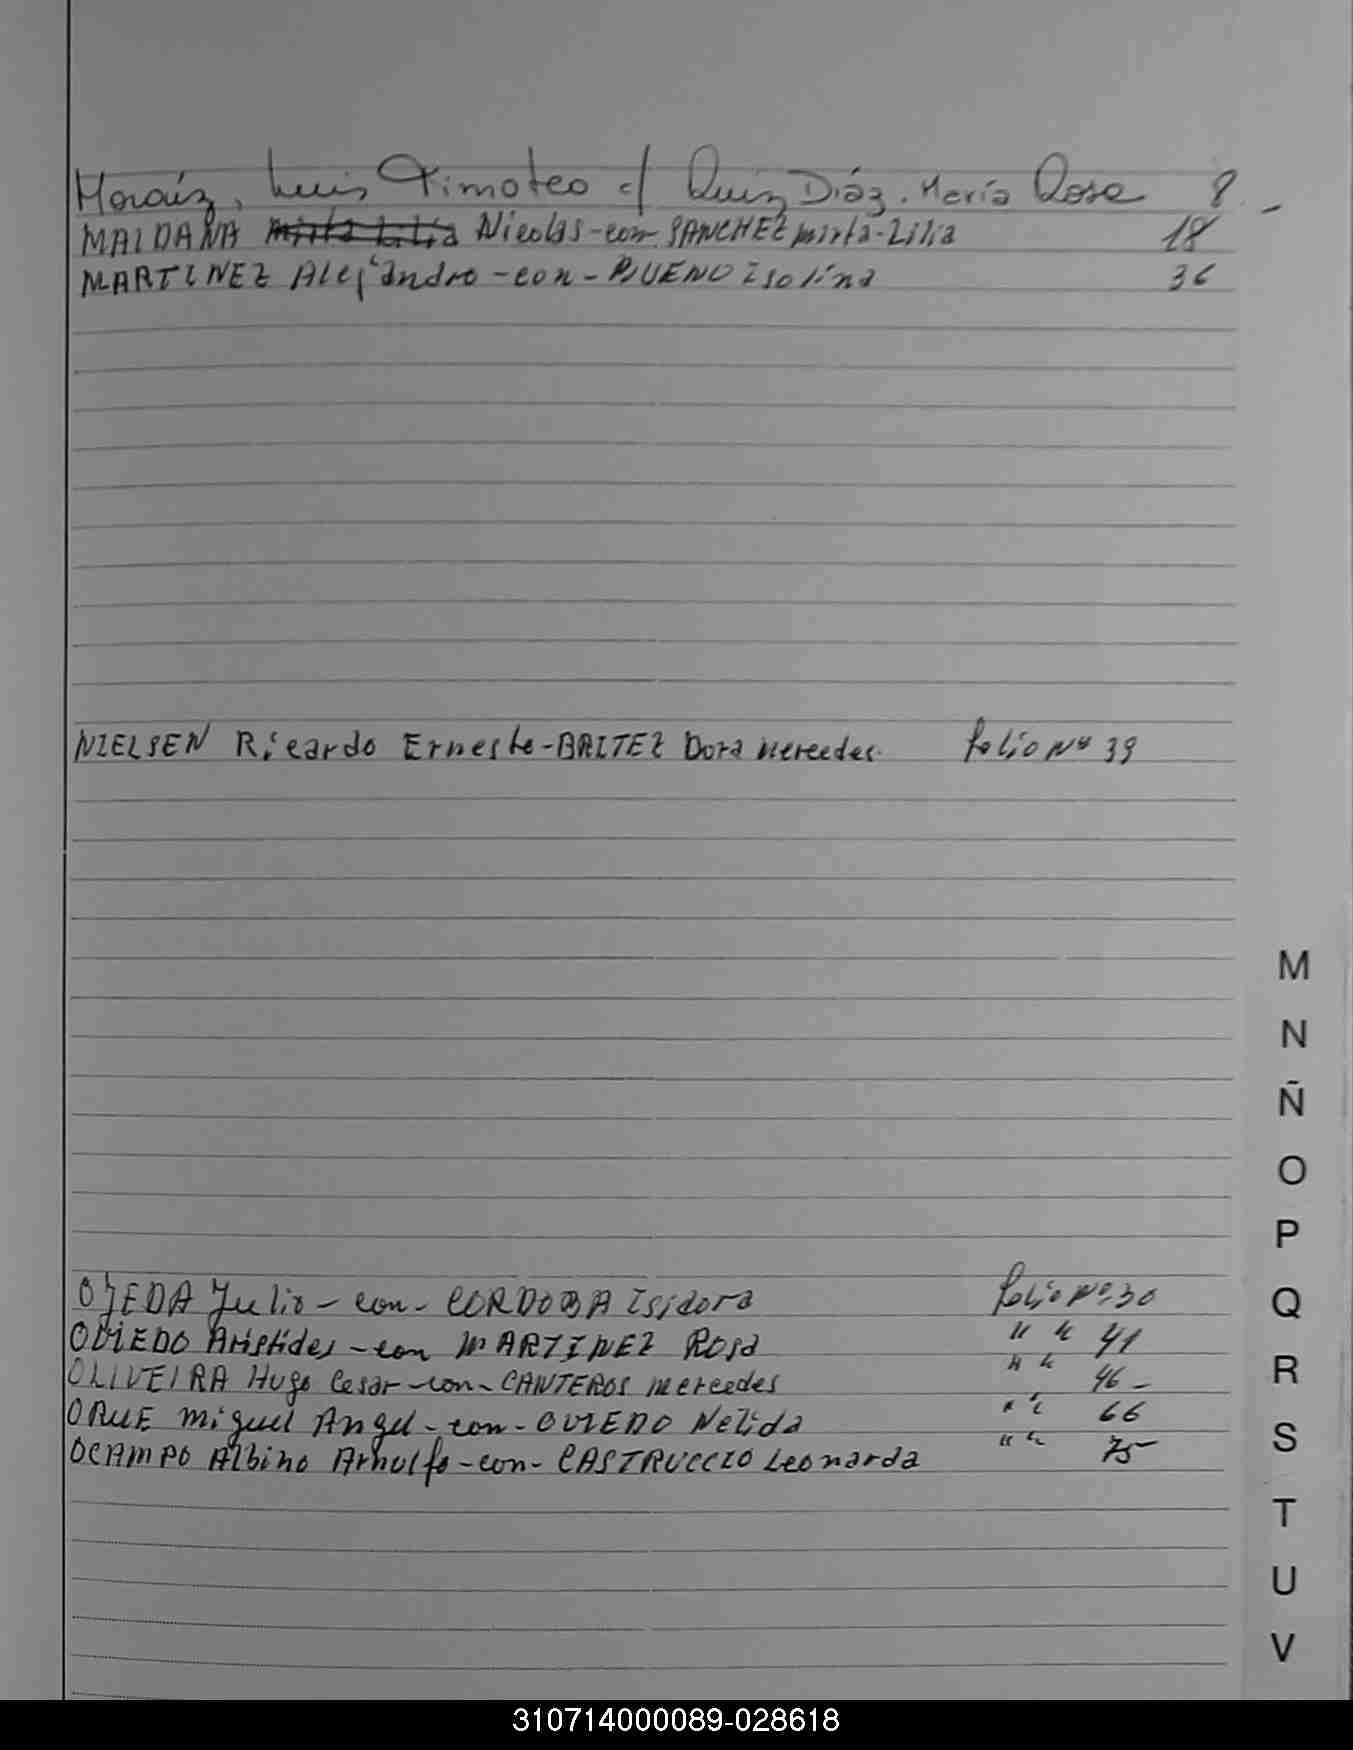 Moraiz, Luis Timoteo c/ Ruiz Diáz. María Rosa 8.-
MALDANA Mirta Lilia Nicolas-con-SANCHEZ mirta-Lilia 18
MARTINEZ Alejandro-con-BUENO Isolina 36
NIELSEN Ricardo Ernesto-BRITEZ Dora Mercedes. folio Nº 39
OJEDA Julio-con-CORDOBA Isidora folio Nº 30
OBIEDO Aristides-con MARTINEZ Rosa " " 41
OLIVEIRA Hugo Cesar-con-CANTEROS mercedes " " 46-
ORUE Miguel Angel-con-OVIEDO Nelida " " 66
OCAMPO Albino Arnulfo-con-CASTRUCCIO Leonarda " " 75
M
N
Ñ
O
P
Q
R
S
T
U
V
310714000089-028618